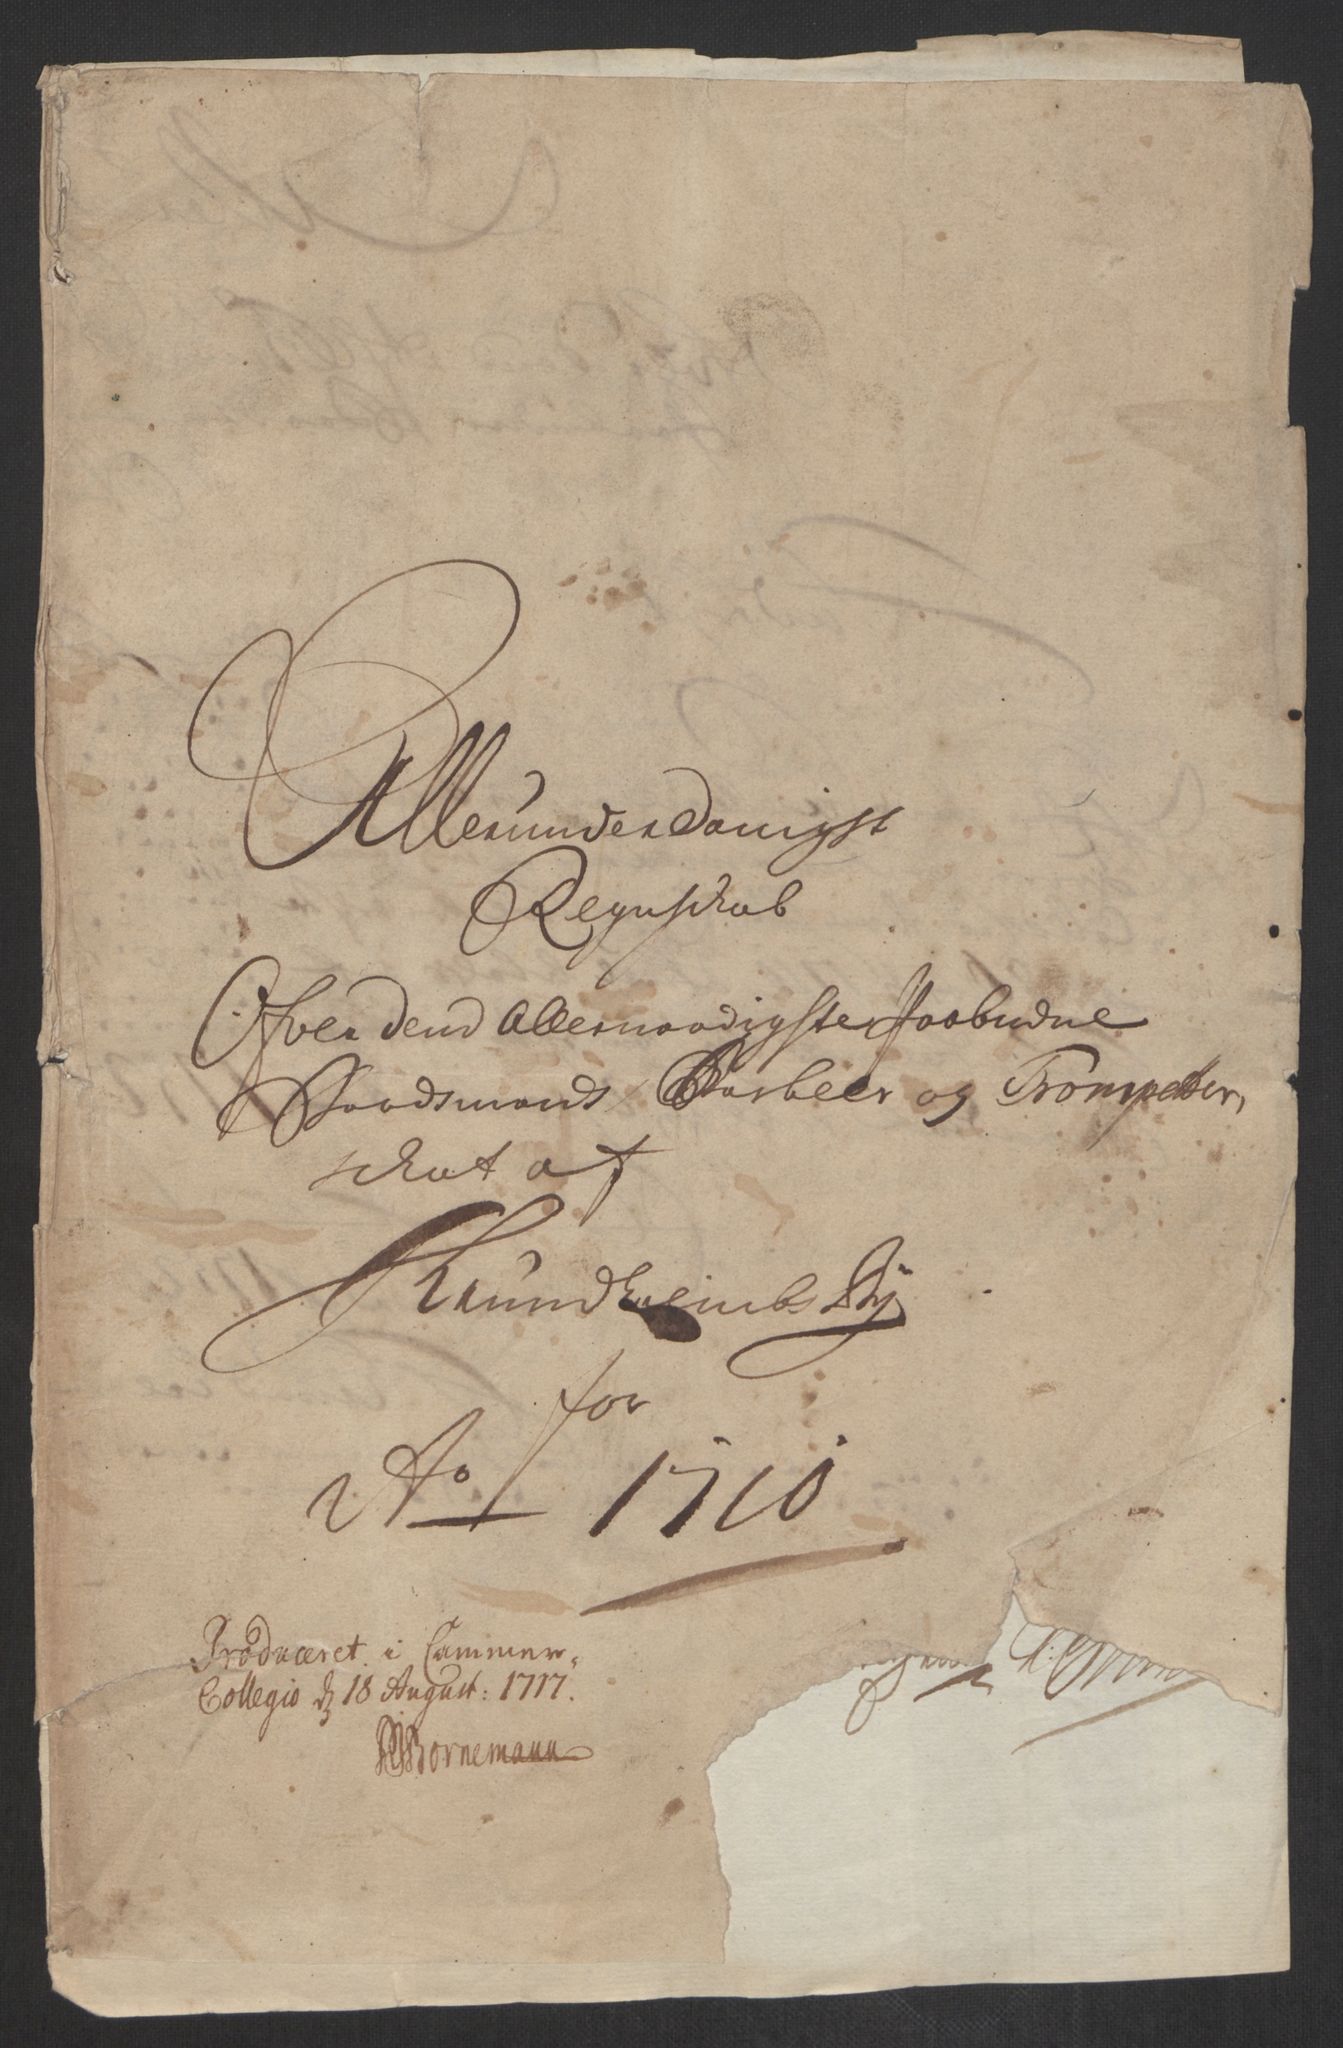 Allerunderdanigst
Regnschab
Ofver dend Allernaadigste paabudne
Baadsmands, Barbeer og Trompetter,
schat af
Trundheimbs By
for
Ao 1710
Produceret i Cammer-
Collegio d 18 August: 1717.
Bornemann